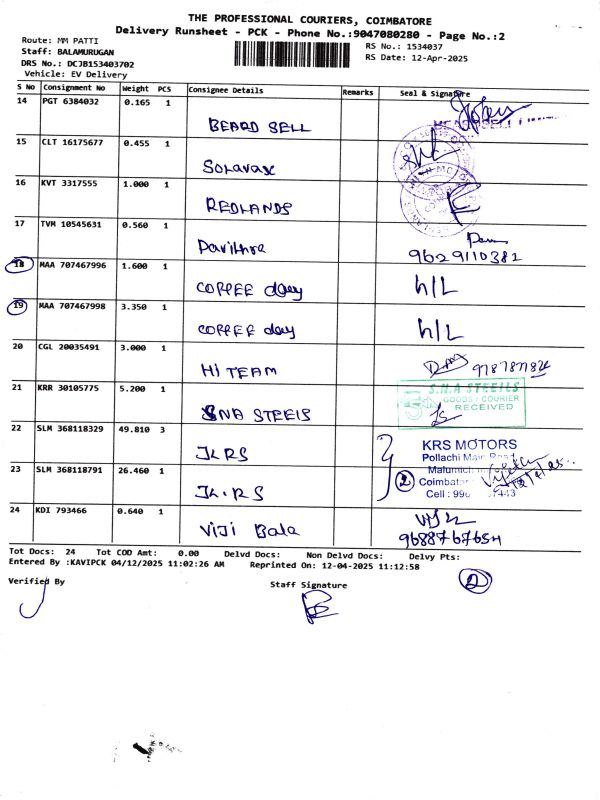 THE PROFESSIONAL COURIERS, COIMBATORE
Delivery Runsheet - PCK - Phone No.:9047080280 - Page No.:2
Route: MM PATTI
RS No.: 1534037
Staff: BALAMURUGAN
RS Date: 12-Apr-2025
DRS No.: DCJB153403702
Vehicle: EV Delivery
S No Consignment No Weight PCS Consignee Details Remarks Seal & Signature
14 PGT 6384032 0.165 1
BEARD SELL
15 CLT 16175677 0.455 1
Solavax
16 KVT 3317555 1.000 1
REDLANDS
17 TVM 10545631 0.560 1
Pavithra 9629110382
18 MAA 707467996 1.600 1
COFFEE day h/L
19 MAA 707467998 3.350 1
COFFEE day h/L
20 CGL 20035491 3.000 1
HI TEAM
21 KRR 30105775 5.200 1
S.N.A STEEILS
GOODS / COURIER
RECEIVED
SNA STEEIS
22 SLM 368118329 49.810 3
KRS MOTORS
Pollachi Main Road
23 SLM 368118791 26.460 1
2
Cell : 990
24 KDI 793466 0.640 1
Viji Bala
Tot Docs: 24 Tot COD Amt: 0.00 Delvd Docs: Non Delvd Docs: Delvy Pts:
Entered By :KAVIPCK 04/12/2025 11:02:26 AM Reprinted On: 12-04-2025 11:12:58
2
Verified By Staff Signature